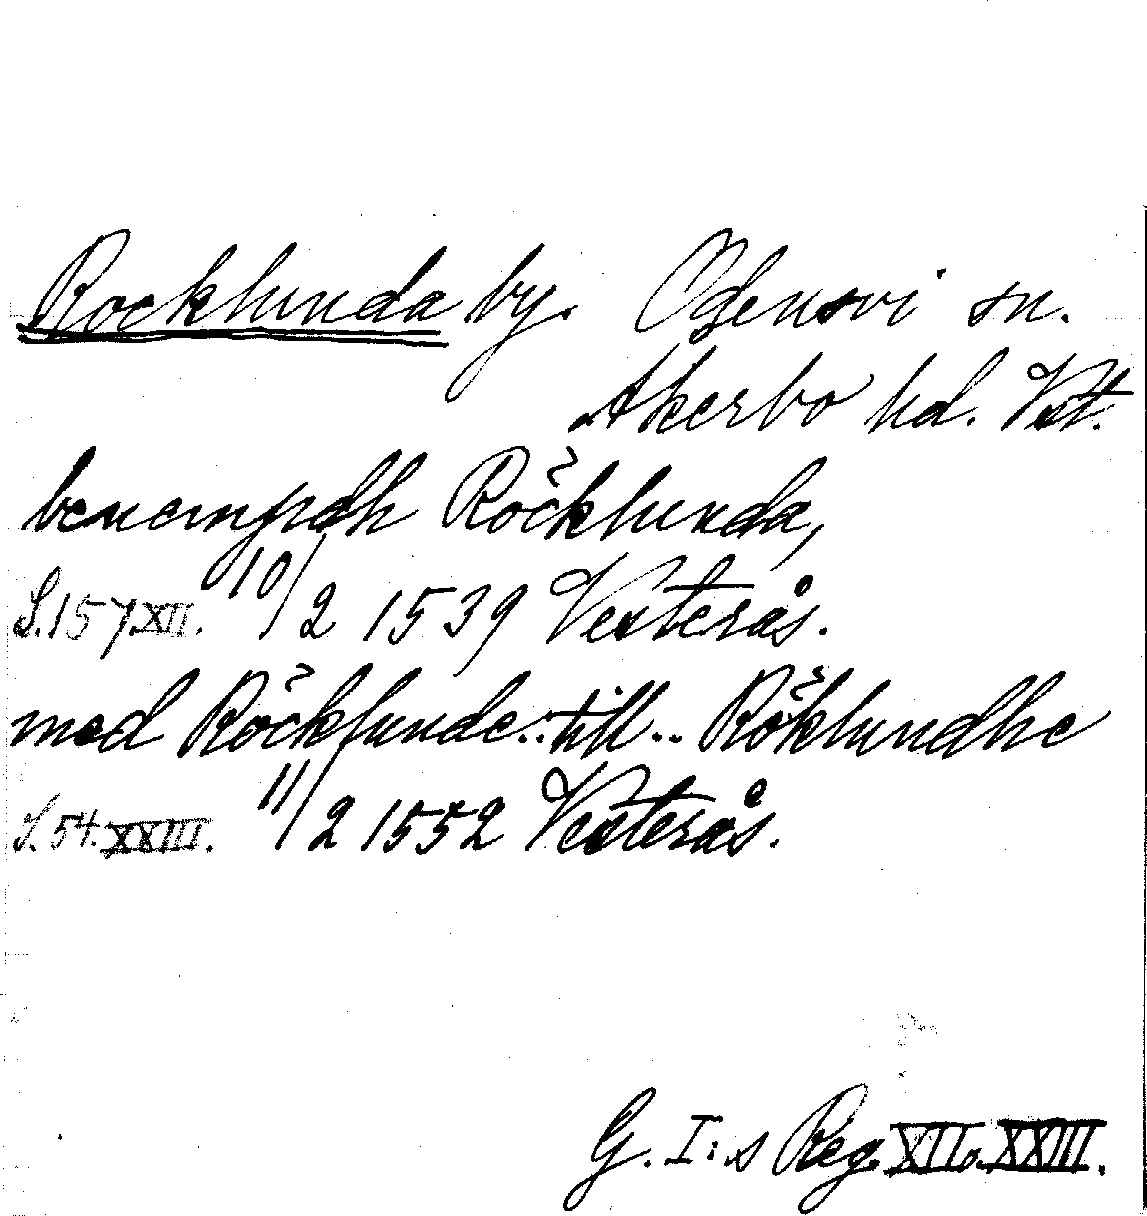 Rocklunda by. Odensvi sn.
Åkerbo hd. Vstl.
benempdh Röcklunda,
S. 157. XII. 10/2 1539 Vesterås.
med Röcklunde.. till .. Röklundhe
S. 54. XXIII. 11/2 1552 Vesterås.
G. I:s Reg. XII o. XXIII.